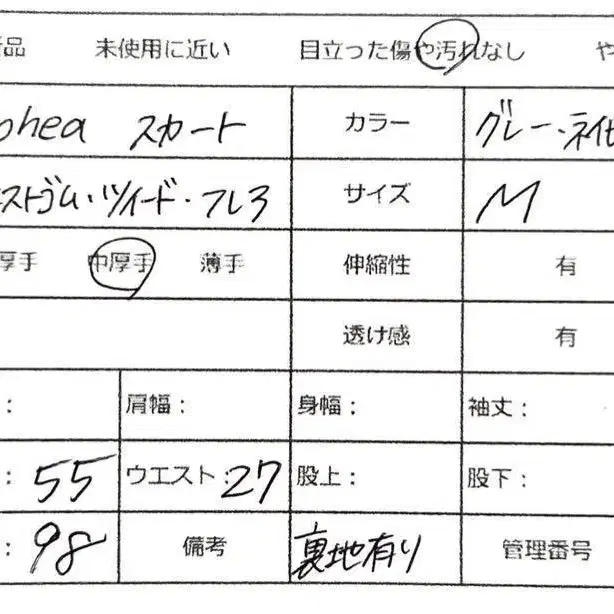 品 未使用に近い 目立った傷や汚れなし や
phea スカート カラー グレー・ネイビ
エストゴム・ツイード・フレア サイズ M
厚手 中厚手 薄手 伸縮性 有
透け感 有
: 肩幅: 身幅: 袖丈:
: 55 ウエスト:27 股上: 股下:
: 98 備考 裏地有り 管理番号